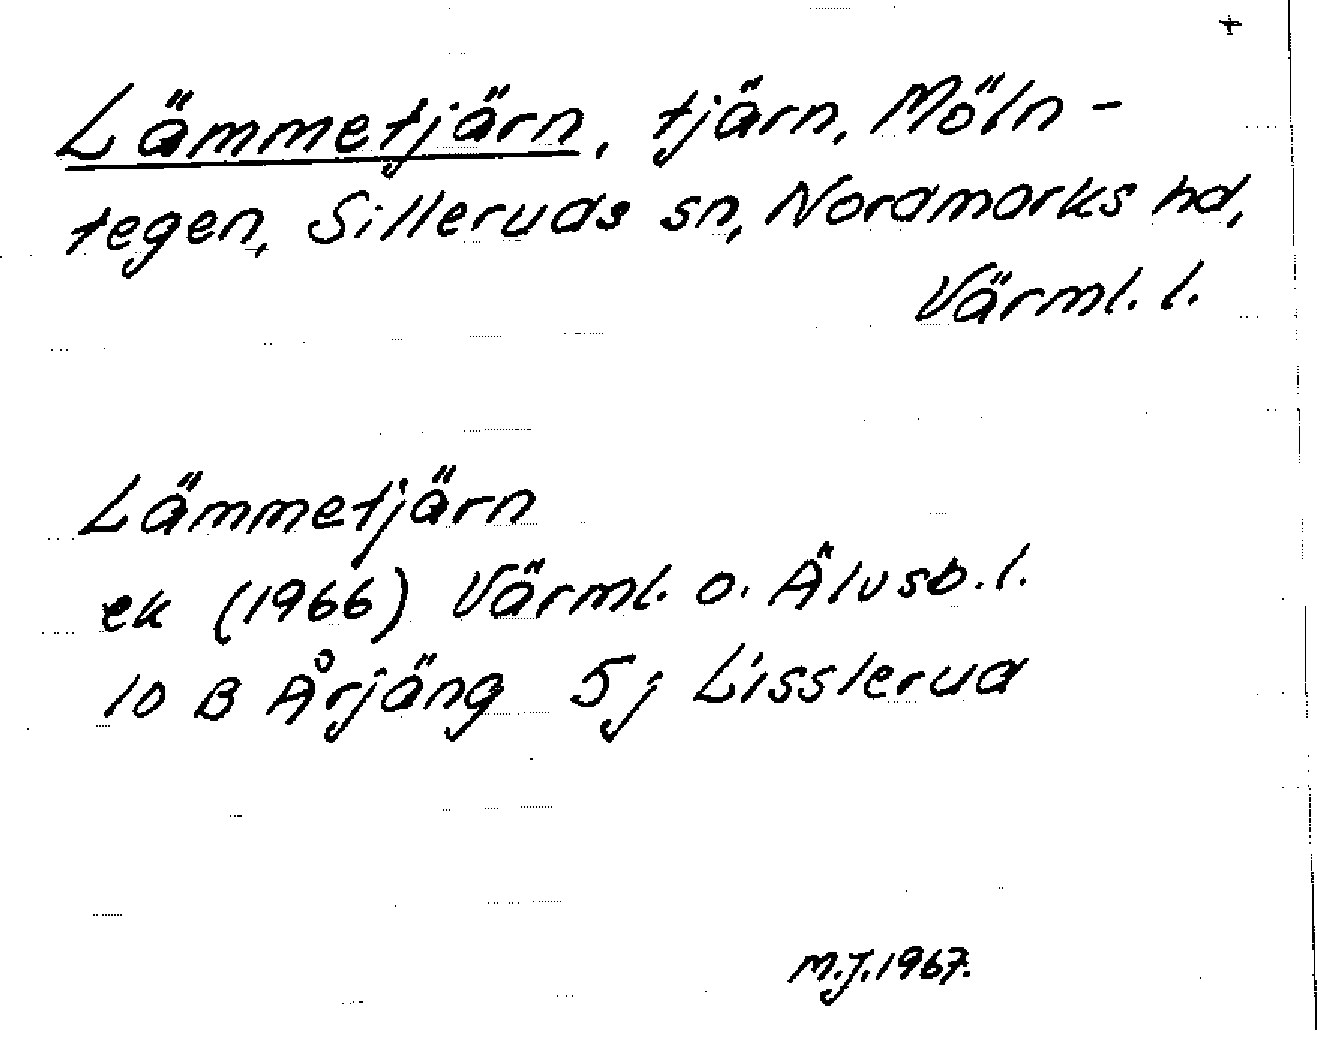 +
Lämmetjärn, tjärn, Möln-
tegen, Silleruds sn, Nordmarks hd,
Värml. l.
Lämmetjärn
ek (1966) Värml. o. Älvsb. l.
10 B Årjäng 5j Lisslerud
M.J. 1967.